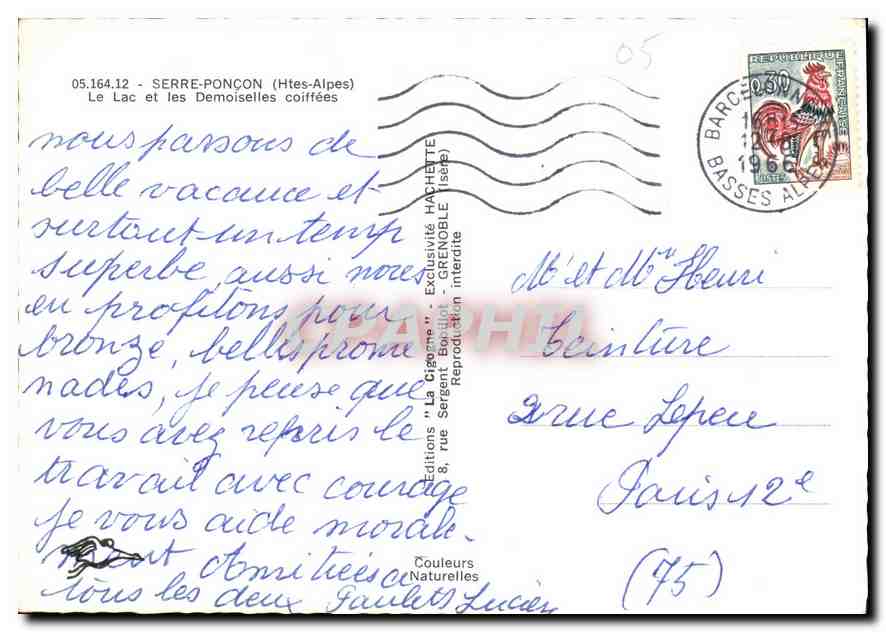 05
05.164.12 - SERRE-PONÇON (Htes-Alpes)
Le Lac et les Demoiselles coiffées
nous passons de
belle vacance et
surtout un temp
superbe aussi nous
en profitons pour
bronzé, belles prome
nades, je pense que
vous avez repris le
travail avec courage
je vous aide morale-
ment Amitiés a
tous les deux Paulet Lucien
Editions "La Cigogne" - Exclusivité HACHETTE
8, rue Sergent Bobillot - GRENOBLE (Isère)
Reproduction interdite
Couleurs
Naturelles
REPUBLIQUE FRANÇAISE
0,30
POSTES
BARCELONN
12-8
1966
BASSES ALPES
Mr et Mme Henri
Teinture
2 rue Lepeu
Paris 12e
(75)
CPAPHIL